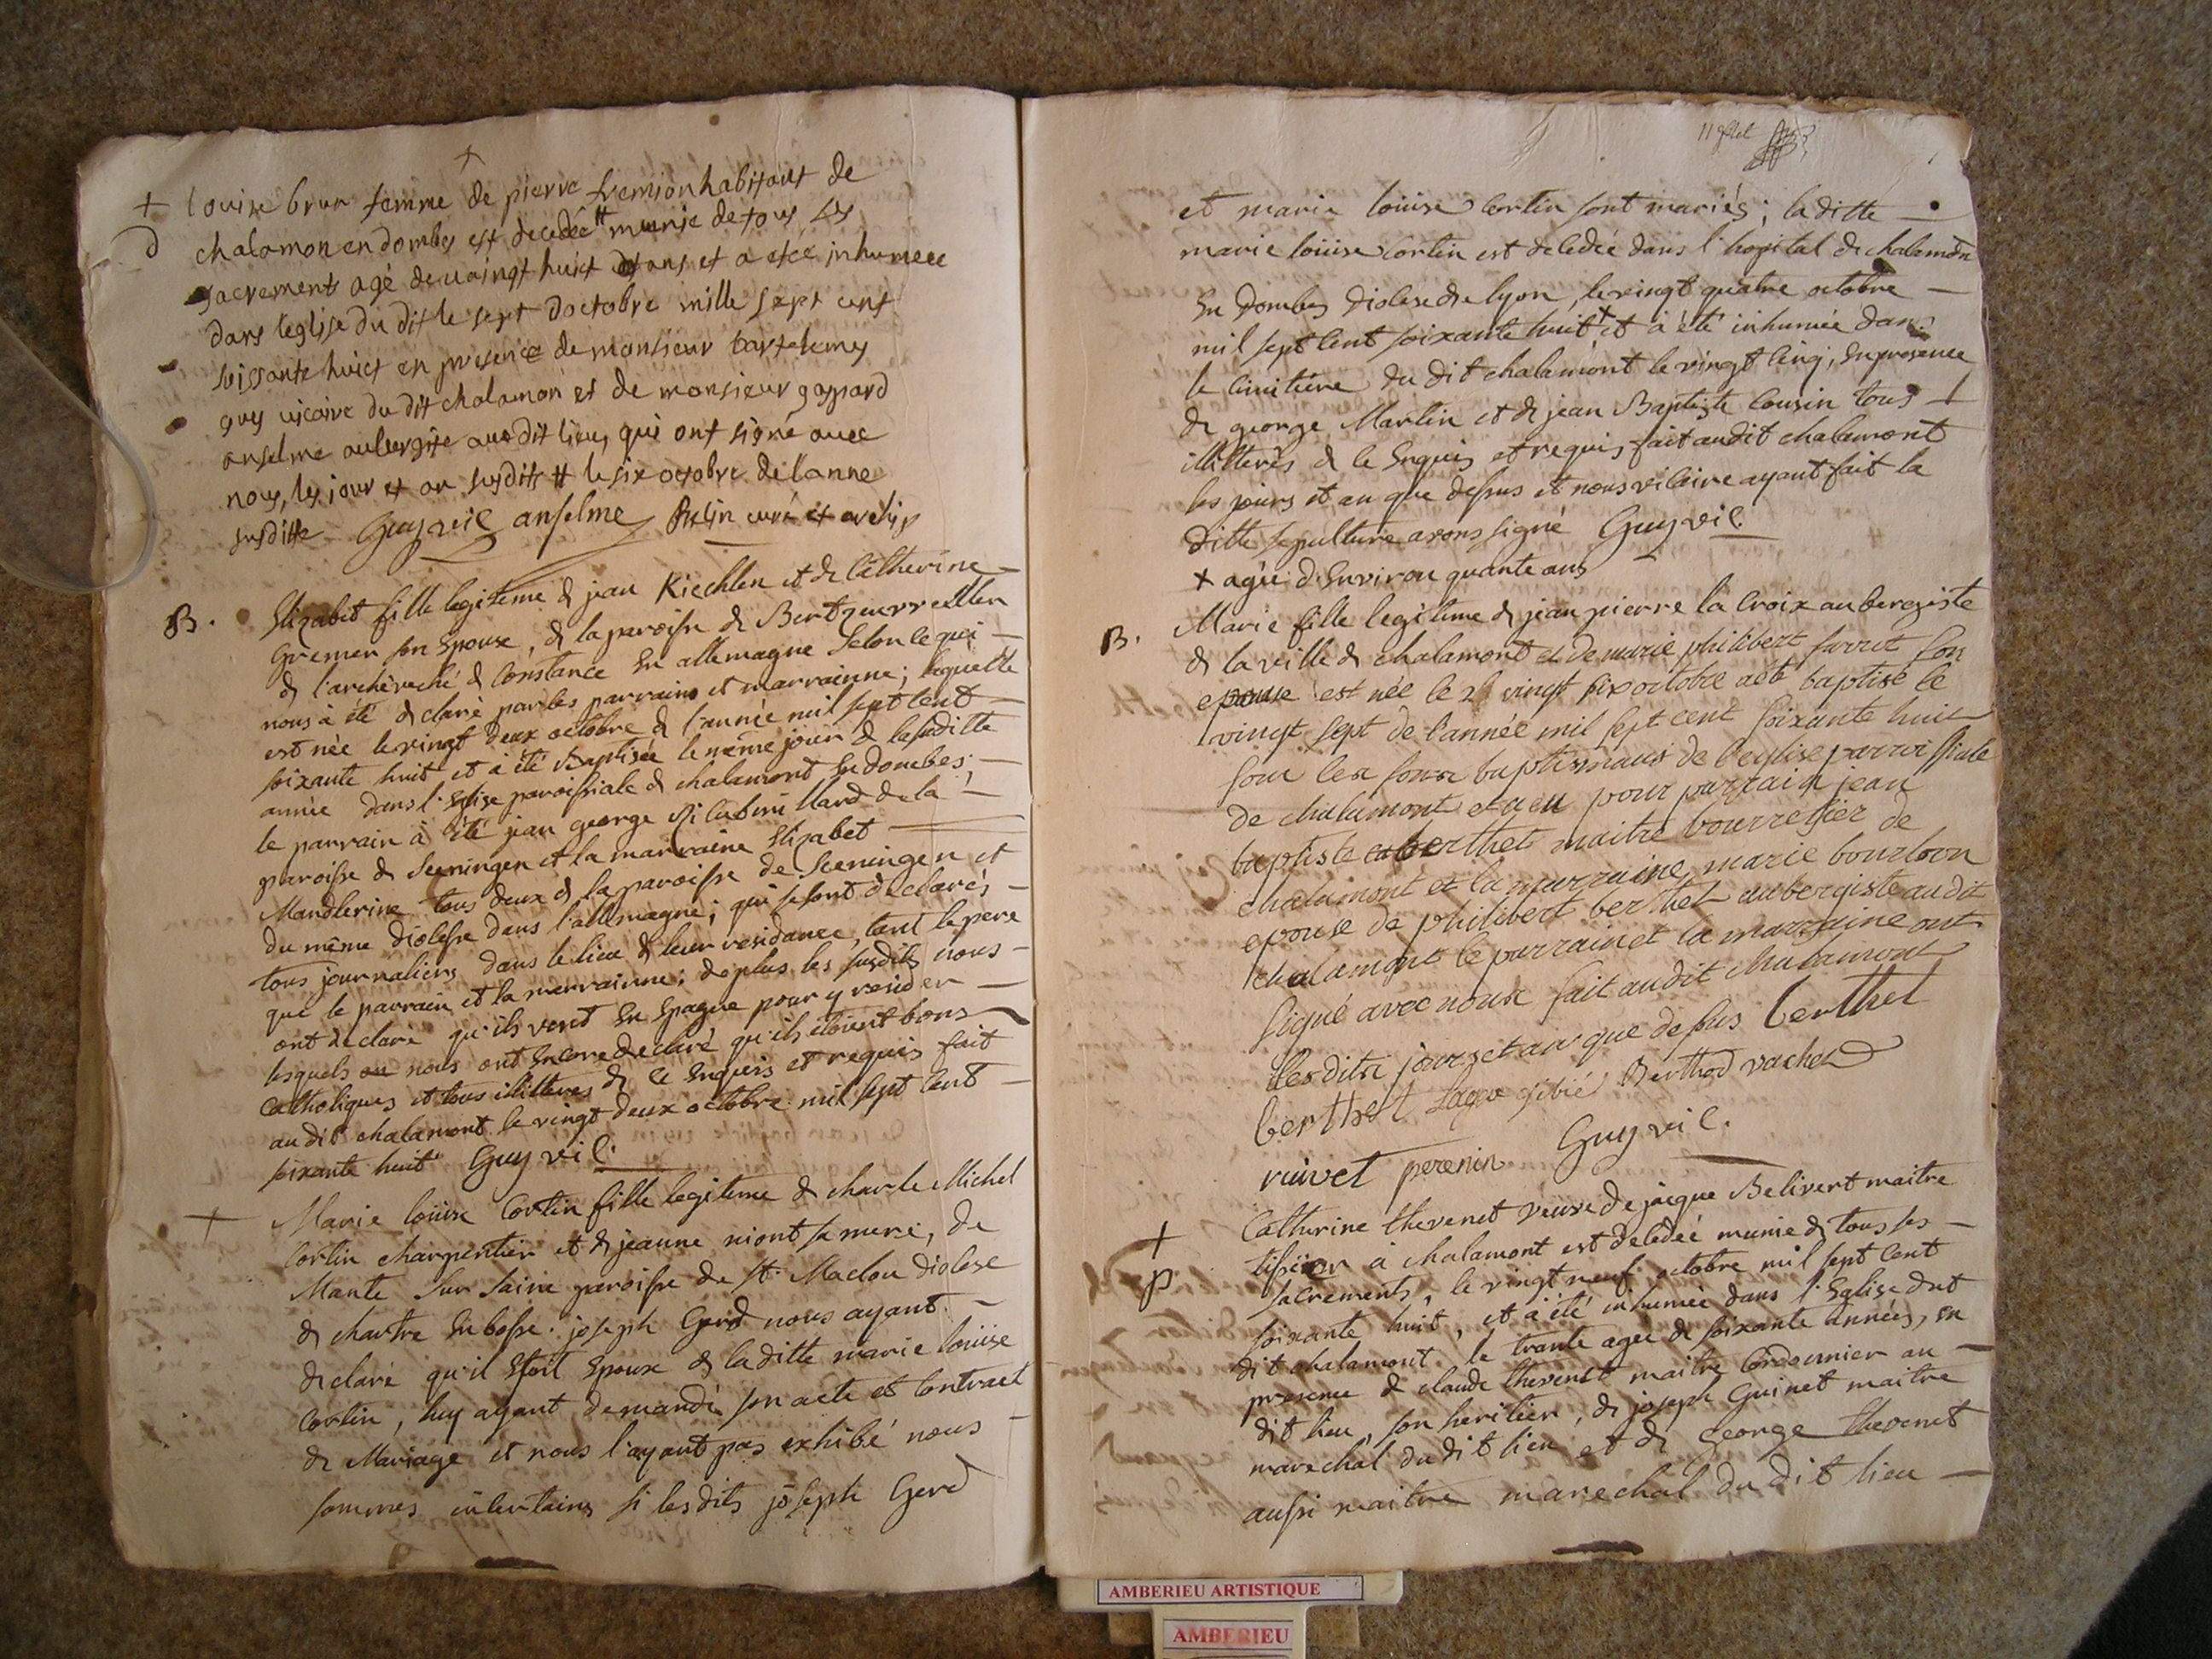 +
+ louise brun femme de pierre fremion habitant de
d chalamon en dombes est decedée # munie de tous les
sacrements agé de vaingt huict ans et a etée inhumeee
dans leglise du dit le sept doctobre mille sept cent
soissante huict en presence de monsieur bartelemy
guy vicaire du dit chalamon et de monsieur gaspard
anselme aubergiste audit lieu, qui ont signé avec
nous, les jour et an susdits # le six octobre de lanne
susditte Guy vic anselme curé et archip
B. Elizabet fille legiteme de jean Kiechlen et de Catherine
Gremer son Epouse, de la paroisse de
de l'archeveché de Constance En allemagne Selon le qui
nous à été declaré par les parrains et marrainne; laquelle
est née le vingt deux octobre de l'année mil sept cent
soixante huit et à été Baptisée le même jour de lasuditte
année dans l'Eglise paroissiale de chalamont En dombes;
le parrain à été jean george de la
paroisse de Seeningen et la marraine Elizabet
Mandlerine tous deux de la paroisse de Seeningen et
du même diocesse dans l'allemagne; qui se sont declarés
tous journaliers dans le lieu de leur residance, tant le pere
que le parrain et la marrainne; de plus les susdits nous
ont declaré qu'ils vont En Epagne pour y resider
lesquels nous ont Encore declaré qu'ils étoient bons
catholiques et tous illitteres de ce Enquis et requis fait
au dit chalamont le vingt deux octobre mil sept cent
soixante huit Guy vic.
+ Marie loüise Cortin fille legiteme de charle Michel
Cortin charpentier et de jeanne niont sa mere, de
Mante Sur Saine paroisse de St Maclou diolese
de chartre En bosse. joseph Gerd nous ayant
declaré qu'il Etoit Epoux de laditte marie loüise
Cortin, luy ayant demandé son acte et Contract
de Mariage et nous l'ayant pas exhibé nous
sommes incertains si lesdits joseph Gerd
et marie loüise Cortin sont mariés; laditte
marie loüise Cortin est deledée dans l'hopital de chalamon
En Dombes Diolese de lyon, le vingt quatre octobre
mil sept Cent soixante huit + et à été inhumée dans
le Cimitiére du dit chalamont le vingt Cinq, En presence
de george Martin et de jean Baptiste Cousin tous
illitterés de ce Enquis et requis fait audit chalamont
les jours et an que dessus et nous viCaire ayant fait la
ditte sepulture avons signé Guy vic.
+ agée d'Environ quante ans
B. Marie fille legitime de jean pierre la Croix aubergiste
de la ville de chalamont et de marie philibert farrut son
epouse est née le vingt six octobre a eté baptisé le
vingt sept de l'année mil sept cent soixante huit
sour les fonx baptismaux de l'eglise parroissiale
de chalamont et a eu pour parrain jean
baptiste berthet maitre bourrelier de
chalamont et la marraine marie bourbon
epouse de philibert berthet aubergiste audit
chalamont le parrain et la marraine ont
signé avec nous fait audit chalamont
les dits jours et an que dessus berthet
berthet Berthod vachet
ruivet perenin Guy vic.
+ Catherine thevenet veuve de jacque Belivert maitre
p tissier à chalamont est deledeé munie de tous ses
sacrements, le vingt neuf octobre mil sept cent
soixante huit, et à été inhumée dans l'Eglise dut
dit chalamont, le trante agee de soixante années, en
presence de claude thevenet maitre Cordonnier au
dit lieu, son heritier, de joseph Guinet maitre
marechal du dit lieu et de George thevenet
aussi maitre marechal du dit lieu
AMBERIEU ARTISTIQUE
AMBERIEU